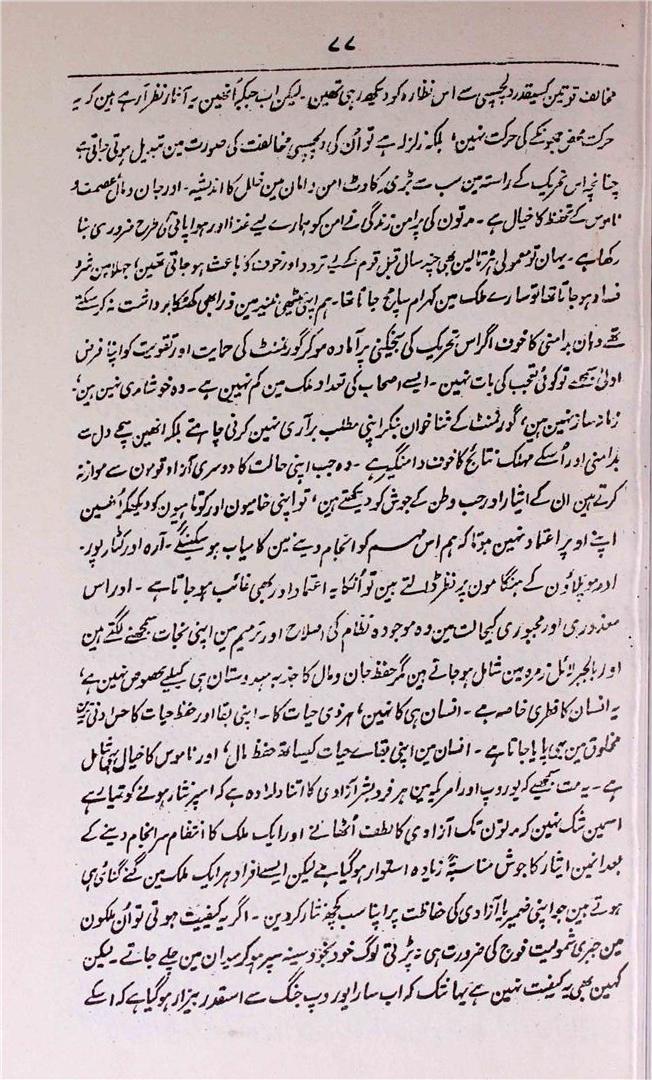 ۷۷
مخالف قوتین کسیقدر دلچسپی سے اس نظارہ کو دیکھ رہی تھین ۔ لیکن اب جبکہ اُنھین یہ آثار نظر آرہے ہین کہ یہ
حرکت محض جھونکے کی حرکت نہین، بلکہ زلزلہ ہے تو اُن کی دلچسپی مخالفت کی صورت مین تبدیل ہوتی جاتی ہے
چنانچہ اس تحریک کے راستہ مین سب سے بڑی رکاوٹ امن و امان مین خلل کا اندیشہ ۔ اور جان و مال عصمت و
ناموس کے تحفظ کا خیال ہے ۔ مدتون کی پرامن زندگی نے امن کو ہمارے لیے غذا اور ہوا پانی کی طرح ضروری بنا
رکھا ہے ۔ یہان تو معمولی ہڑتالین بھی چند سال قبل قوم کے لیے تردد اور خوف کا باعث ہو جاتی تھین، جہلا مین شر و
فساد ہو جاتا تھا تو سارے ملک مین کہرام سا مچ جاتا تھا ۔ ہم اپنی میٹھی نیند مین ذرا بھی کھٹکا برداشت نہ کر سکتے
تھے وہان بدامنی کا خوف اگر اس تحریک کی بیخکنی پر آمادہ ہو کر گورنمنٹ کی حمایت اور تقویت کو اپنا فرض
اولیٰ سمجھے تو کوئی تعجب کی بات نہین ۔ ایسے اصحاب کی تعداد ملک مین کم نہین ہے ۔ وہ خوشامدی نہین ہین،
زمانہ ساز نہین ہین، گورنمنٹ کے ثناخوان بنکر اپنی مطلب برآری نہین کرنی چاہتے بلکہ انھین سچے دل سے
بدامنی اور اُسکے مہلک نتائج کا خوف دامنگیر ہے ۔ وہ جب اپنی حالت کا دوسری آزاد قومون سے موازنہ
کرتے ہین ان کے ایثار اور حب وطن کے جوش کو دیکھتے ہین، تو اپنی خامیون اور کوتاہیون کو دیکھکر اُنھین
اپنے اوپر اعتماد نہین ہوتا کہ ہم اس مہم کو انجام دینے مین کامیاب ہو سکینگے ۔ آرہ اور کٹارپور ۔
اور موپلاؤن کے ہنگامون پر نظر ڈالتے ہین تو اُنکا یہ اعتماد اور بھی غائب ہو جاتا ہے ۔ اور اس
معذوری اور مجبوری کیحالت مین وہ موجودہ نظام کی اصلاح اور ترمیم مین اپنی نجات سمجھنے لگتے ہین
اور بالجبر لائل زمرہ مین شامل ہو جاتے ہین مگر حفظ جان و مال کا جذبہ ہندوستان ہی کیلیے مخصوص نہین ہے،
یہ انسان کا فطری خاصہ ہے ۔ انسان ہی کا نہین، ہر ذی حیات کا ۔ اپنی بقا اور حفظ حیات کا حس ادنی ترین
مخلوق مین بھی پایا جاتا ہے ۔ انسان مین اپنی بقاے حیات کیساتھ حفظ مال، اور ناموس کا خیال بھی شامل
ہے ۔ یہ مت سمجھیے کہ یوروپ اور امریکہ مین ہر فرد بشر آزادی کا اتنا دلدادہ ہے کہ اسپر نثار ہونے کو تیار ہے
اسمین شک نہین کہ مدتون تک آزادی کا لطف اُٹھانے اور ایک ملک کا انتظام سرانجام دینے کے
بعد انمین ایثار کا جوش مناسبۃً زیادہ استوار ہو گیا ہے لیکن ایسے افراد ہر ایک ملک مین گنے گنائے ہی
ہوتے ہین جو اپنی ضمیر یا آزادی کی حفاظت پر اپنا سب کچھ نثار کر دین ۔ اگر یہ کیفیت ہوتی تو اُن ملکون
مین جبری شمولیت فوج کی ضرورت ہی نہ پڑتی لوگ خود بخود سینہ سپر ہو کر میدان مین چلے جاتے ۔ لیکن
کہین بھی یہ کیفیت نہین ہے یہانتک کہ اب سارا یوروپ جنگ سے اسقدر بیزار ہو گیا ہے کہ اسکے